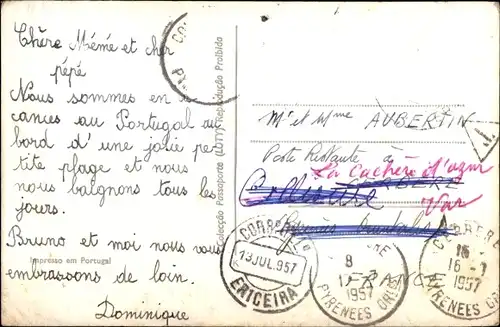 Chère Mémé et cher
pépé
Nous sommes en
cances au Portugal au
bord d'une jolie pe
tite plage et nous
nous baignons tous les
jours.
Bruno et moi nous vous
embrassons de loin.
Dominique
Impresso em Portugal
Colecção Passaporte (LOTY) Reprodução Proibida
Mr et Mme AUBERTIN
Poste Restante à
La Cachère d'azur
Collioure
Var
FRANCE
CORREIOS
13 JUL. 957
ERICEIRA
8
1957
PYRENEES ORIES
16
16-7
1957
PYRENEES